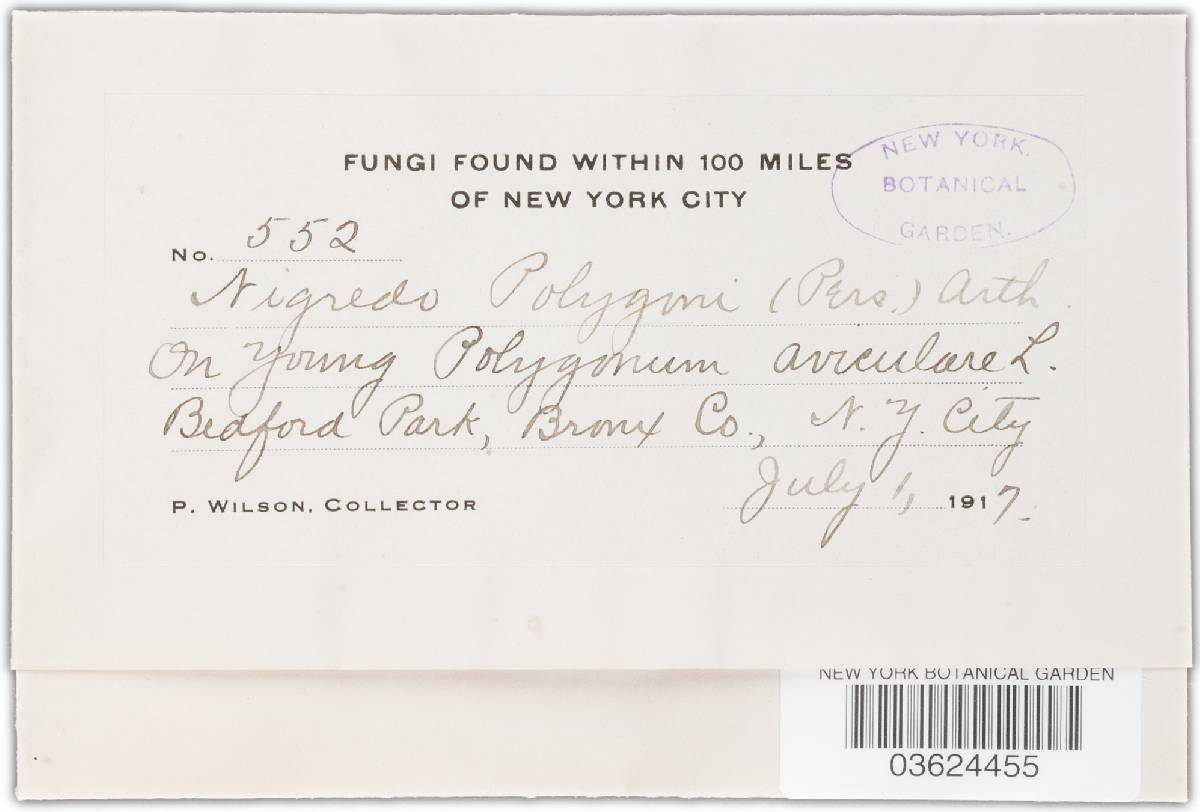 FUNGI FOUND WITHIN 100 MILES
OF NEW YORK CITY
NEW YORK.
BOTANICAL
GARDEN.
No. 552
Nigredo Polygoni (Pers.) Arth.
On young Polygonum aviculare L.
Bedford Park, Bronx Co., N. Y. City
P. WILSON, COLLECTOR
July 1, 1917.
NEW YORK BOTANICAL GARDEN
03624455